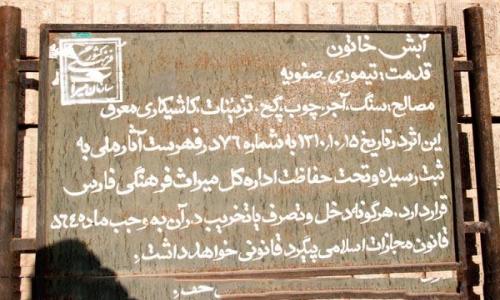 آبش خاتون
سازمان میراث فرهنگی کشور
قدمت: تیموری، صفویه
مصالح: سنگ، آجر، چوب، گچ، تزئینات، کاشیکاری معرق
این اثر در تاریخ ۱۳۱۰،۱۰،۱۵ به شماره ۷۶ در فهرست آثار ملی به
ثبت رسیده و تحت حفاظت اداره کل میراث فرهنگی فارس
قرار دارد. هرگونه دخل و تصرف یا تخریب در آن به وجب ماده ۵۶۴
قانون مجازات اسلامی پیگرد قانونی خواهد داشت،